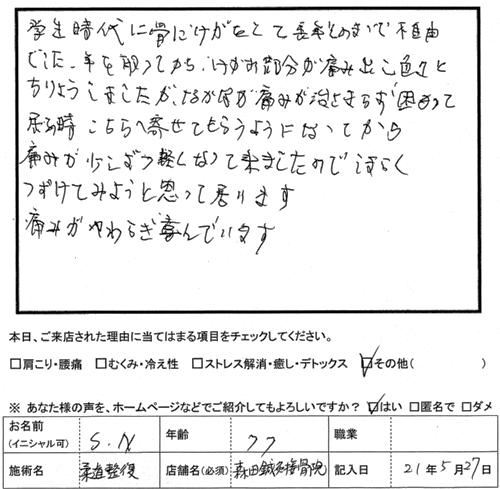 学生時代に骨にけがをして長年そのままで不自由
でした。年を取ってから、けがの部分が痛み出し色々と
ちりょうしましたが、なかなか痛みが治まらず困って
居る時こちらへ寄せてもらうようになってから
痛みが少しずつ軽くなって来ましたのでしばらく
つずけてみようと思って居ります
痛みがやわらぎ喜んでいます
本日、ご来店された理由に当てはまる項目をチェックしてください。
□肩こり・腰痛 □むくみ・冷え性 □ストレス解消・癒し・デトックス ☑その他( )
※ あなた様の声を、ホームページなどでご紹介してもよろしいですか? ☑はい □匿名で □ダメ
お名前 (イニシャル可) S.N 年齢 77 職業
施術名 柔道整復 店舗名(必須) 森田鍼灸接骨院 記入日 21年5月27日